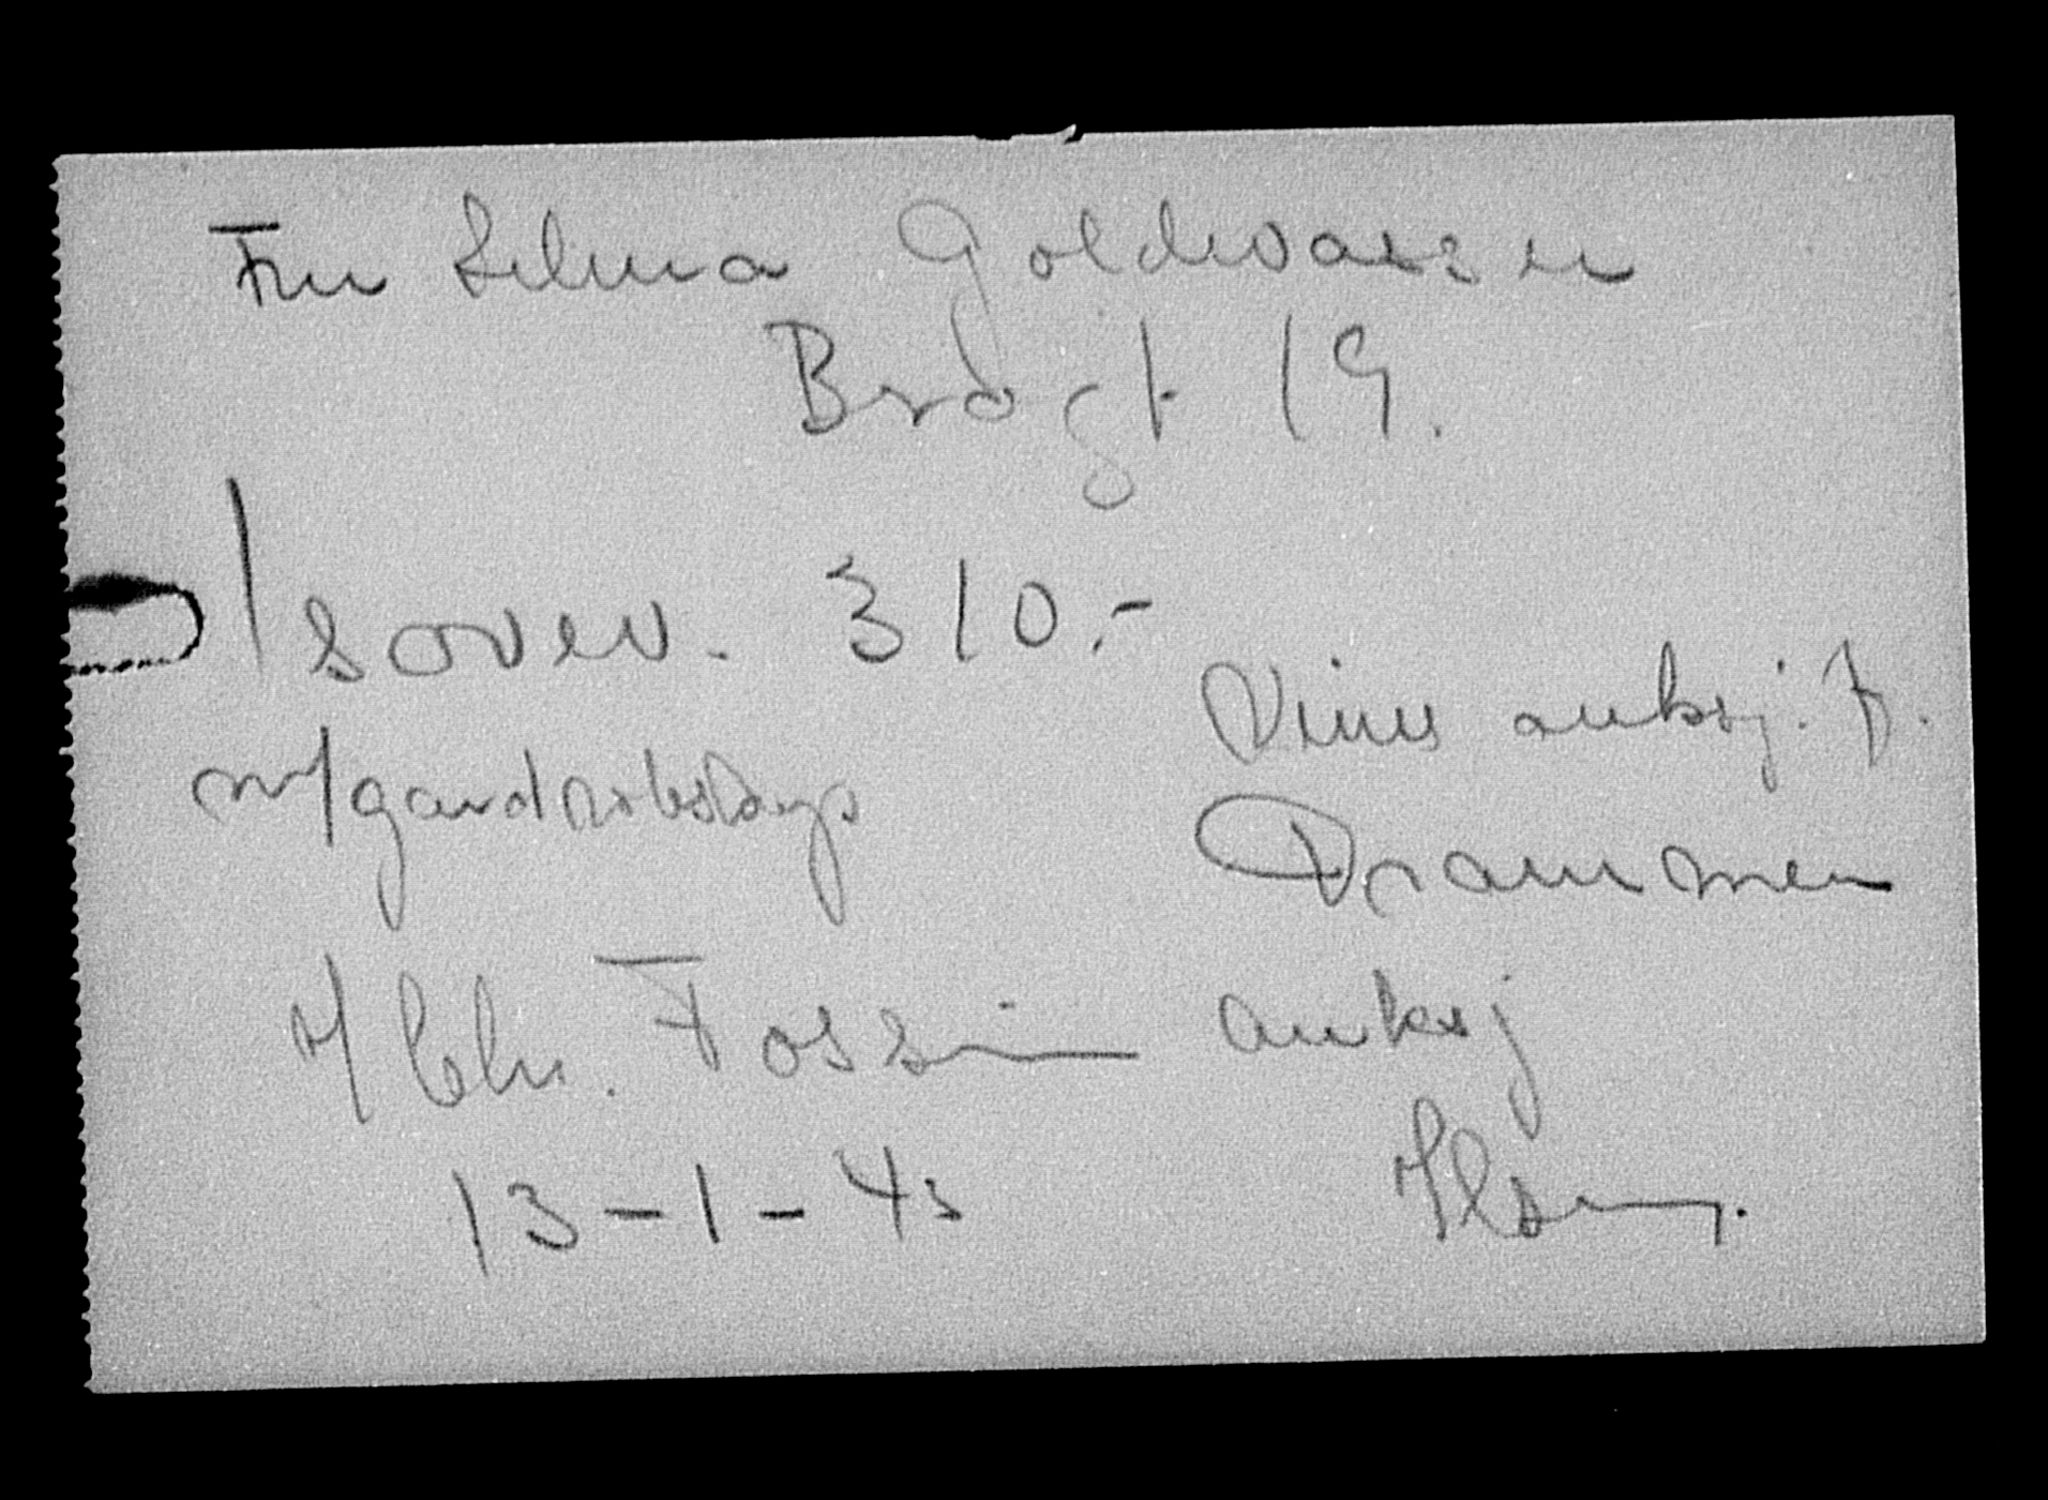 Fru Selma Goldwasser
Brdgt 19.
1 sovev. 310.-
m/gardrobskap
Viuls auksj. f.
Drammen
H/ Chr. Fossin auksj
13-1-43